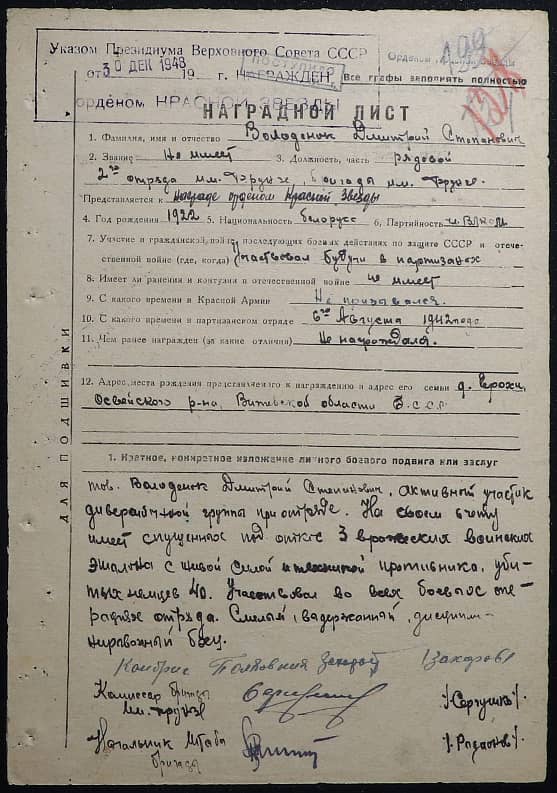 Указом Президиума Верховного Совета СССР
от 30 ДЕК 1948 19 г. НАГРАЖДЕН
орденом КРАСНОЙ ЗВЕЗДЫ
Орденом
Все графы заполнять полностью
НАГРАДНОЙ ЛИСТ
1. Фамилия, имя и отчество Володенок Дмитрий Степанович
2. Звание Не имеет 3. Должность, часть рядовой
2го отряда им. Фрунзе, бригады им. Фрунзе.
Представляется к награде орденом Красной Звезды
4. Год рождения 1922 5. Национальность белорусс 6. Партийность чл. ВЛКСМ
7. Участие в гражданской войне, последующих боевых действиях по защите СССР и отече-
ственной войне (где, когда) Участвовал будучи в партизанах
8. Имеет ли ранения и контузии в отечественной войне не имеет
9. С какого времени в Красной Армии Не призывался.
10. С какого времени в партизанском отряде 6го Августа 1942 года
11. Чем ранее награжден (за какие отличия) Не награждался.
12. Адрес места рождения представляемого к награждению и адрес его семьи д.
Освейского р-на, Витебской области Б.С.С.Р.
ДЛЯ ПОДШИВКИ
1. Краткое, конкретное изложение личного боевого подвига или заслуг
тов. Володенок Дмитрий Степанович, активный участник
диверсионной группы при отряде. На своем счету
имеет спущенных под откос 3 вражеских воинских
эшалона с живой силой и техникой противника, уби-
тых немцев 40. Участвовал во всех боевых опе-
рациях отряда. Смелый, выдержанный, дисципли-
нированный боец.
Комбриг Полковник Захаров /Захаров/
Комиссар бригады
им. Фрунзе
Начальник штаба
бригады